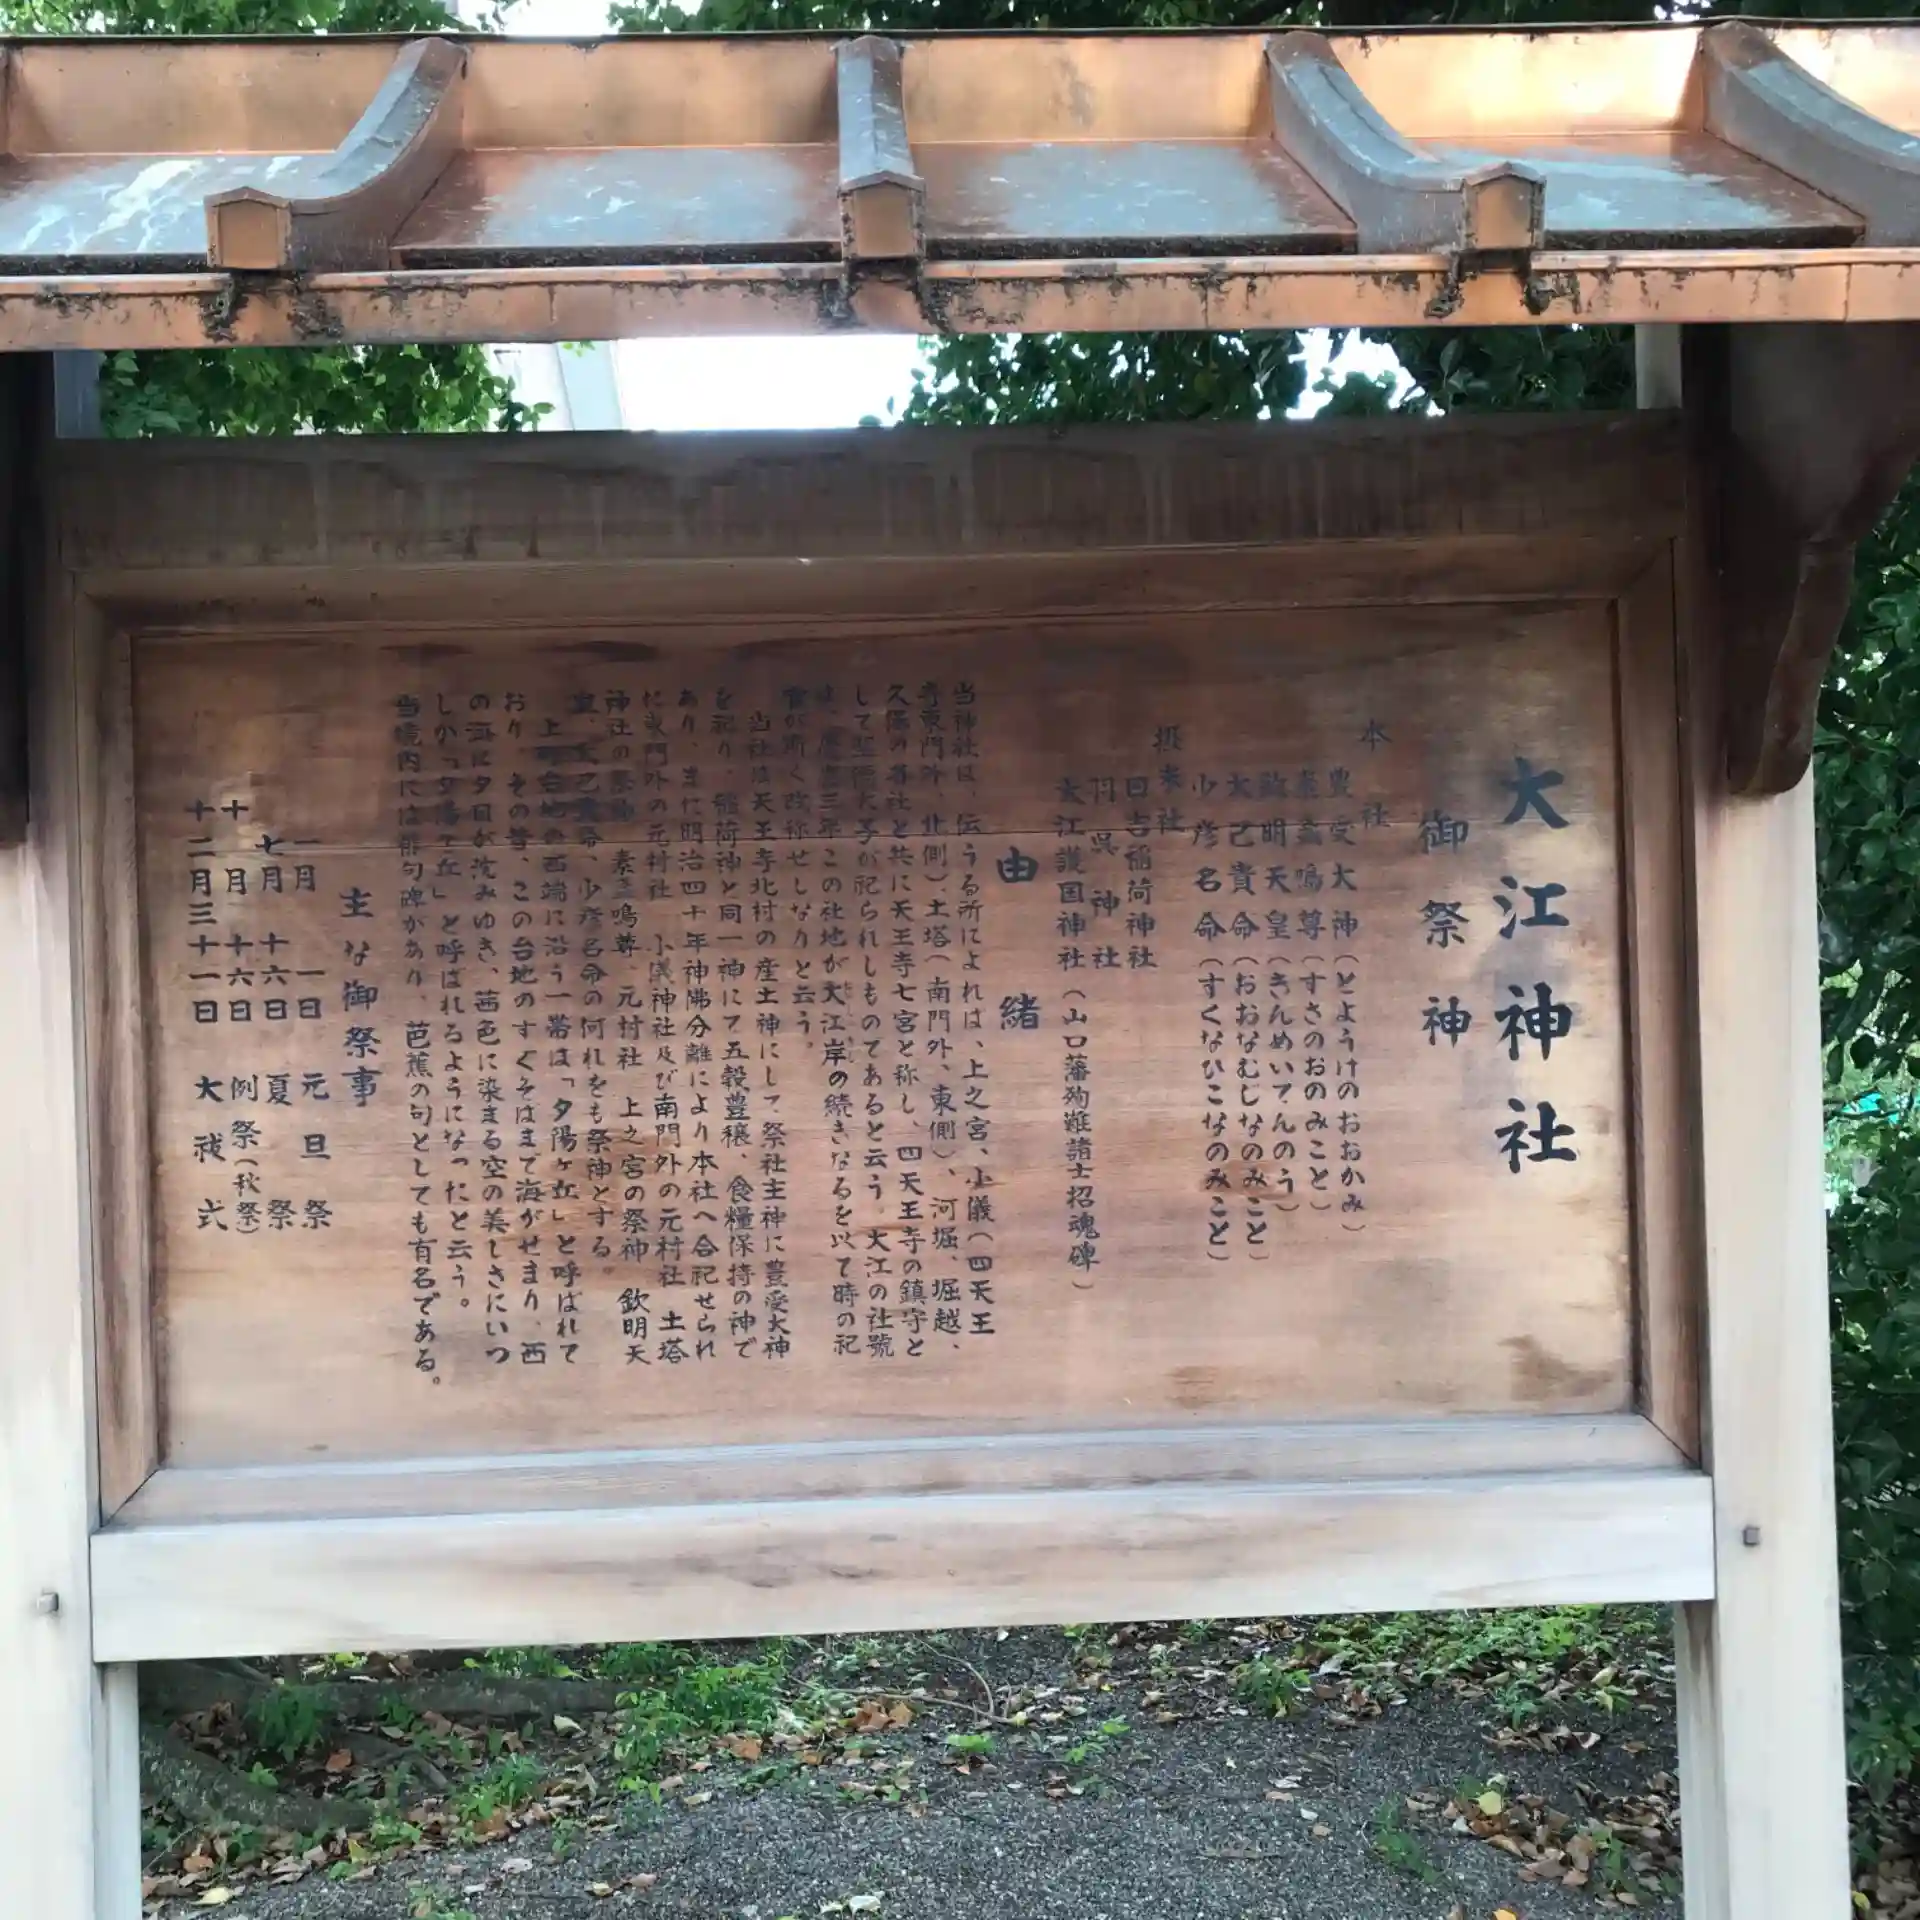 大江神社
御祭神
本社
豊受大神（とようけのおおかみ）
素盞嗚尊（すさのおのみこと）
欽明天皇（きんめいてんのう）
大己貴命（おおなむじなのみこと）
少彦名命（すくなひこなのみこと）
摂末社
日吉稲荷神社
羽呉神社
大江護国神社（山口藩殉難諸士招魂碑）
由緒
当神社は、伝うる所によれば、上之宮、小儀（四天王
寺東門外、北側）、土塔（南門外、東側）、河堀、堀越、
久保の各社と共に天王寺七宮と称し、四天王寺の鎮守と
して聖徳太子が祀られしものであると云う。大江の社號
は、慶應三年この社地が大江岸の続きなるを以て時の祀
官が斯く改称せしなりと云う。
当社は天王寺北村の産土神にして祭社主神に豊受大神
を祀り、稲荷神と同一神にて五穀豊穣、食糧保持の神で
あり、また明治四十年神佛分離により本社へ合祀せられ
に東門外の元村社 小儀神社及び南門外の元村社 土塔
神社の祭神 素盞嗚尊、元村社 上之宮の祭神 欽明天
皇、大己貴命、少彦名命の何れをも祭神とする。
上町台地の西端に沿う一帯は「夕陽ヶ丘」と呼ばれて
おり、その昔、この台地のすぐそばまで海がせまり、西
の海に夕日が沈みゆき、茜色に染まる空の美しさにいつ
しか「夕陽ヶ丘」と呼ばれるようになったと云う。
当境内には俳句碑があり、芭蕉の句としても有名である。
主な御祭事
一月 一日 元旦祭
七月 十六日 夏祭
十月 十六日 例祭（秋祭）
十二月三十一日 大祓式